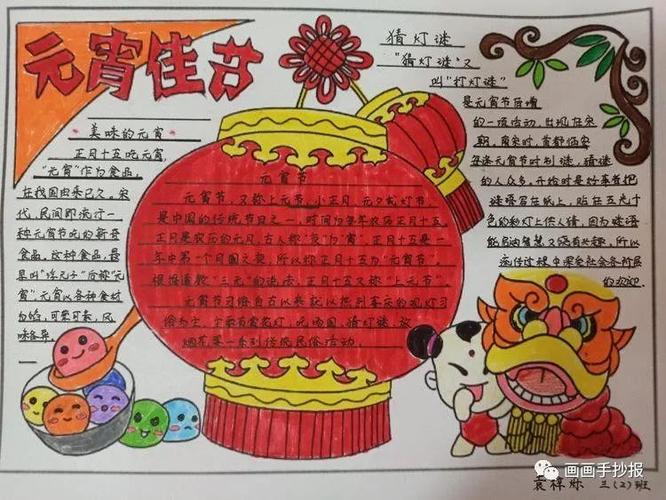 元宵佳节
美味的元宵
正月十五吃元宵,
"元宵"作为食品,
在我国由来已久。宋
代,民间即流行一
种元宵节吃的新奇
食品。这种食品,最
早叫"浮元子"后称"元
宵",元宵以各种食材
为馅,可荤可素,风
味各异。
元宵节
元宵节,又称上元节,小正月,元夕或灯节
是中国的传统节日之一,时间为每年农历正月十五
正月是农历的元月,古人称"夜"为"宵",正月十五是一
年中第一个月圆之夜,所以称正月十五为"元宵节"。
根据道教"三元"的说法,正月十五又称"上元节"
元宵节习俗自古以来就以热列喜庆的观灯习
俗为主,
烟花是一系列传统民俗活动。
猜灯谜
"猜灯谜"又
叫"打灯谜"
是元宵节后增
的一项活动,出现在宋
朝。南宋时,首都临安
每逢元宵节时制谜,猜谜
的人众多。开始时是好事者把
谜语写在纸上,贴在五光十
色的彩灯上供人猜,因为谜语
能启迪智慧又饶有兴趣,所以
流传过程中深受社会各阶层
的欢迎
画画手抄报
三(2)班